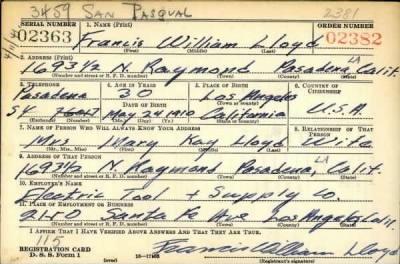 3459 SAN PASQUAL 2381
SERIAL NUMBER 1. NAME (Print) ORDER NUMBER
02363 Francis William Lloyd 02382
(First) (Middle) (Last)
2. ADDRESS (Print)
1693½ N. Raymond Pasadena LA Calif.
(Number and street or R. F. D. number) (Town) (County) (State)
3. TELEPHONE 4. AGE IN YEARS 5. PLACE OF BIRTH 6. COUNTRY OF CITIZENSHIP
Pasadena 30 Los Angeles
(Town or county)
DATE OF BIRTH
Sy May 2 1910 California U.S.A.
(Exchange) (Number) (Mo.) (Day) (Yr.) (State or country)
7. NAME OF PERSON WHO WILL ALWAYS KNOW YOUR ADDRESS 8. RELATIONSHIP OF THAT PERSON
Mrs Mary Kay Lloyd Wife
(Mr., Mrs., Miss) (First) (Middle) (Last)
9. ADDRESS OF THAT PERSON
1693½ N. Raymond Pasadena, LA Calif.
(Number and street or R. F. D. number) (Town) (County) (State)
10. EMPLOYER'S NAME
Electric Tool & Supply Co.
11. PLACE OF EMPLOYMENT OR BUSINESS
2150 Santa Fe Ave Los Angeles Calif.
(Number and street or R. F. D. number) (Town) (County) (State)
I AFFIRM THAT I HAVE VERIFIED ABOVE ANSWERS AND THAT THEY ARE TRUE.
115
REGISTRATION CARD
D. S. S. Form 1 Francis William Lloyd
(Registrant's signature)